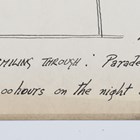 SMILING THROUGH: Parade
00 hours on the night